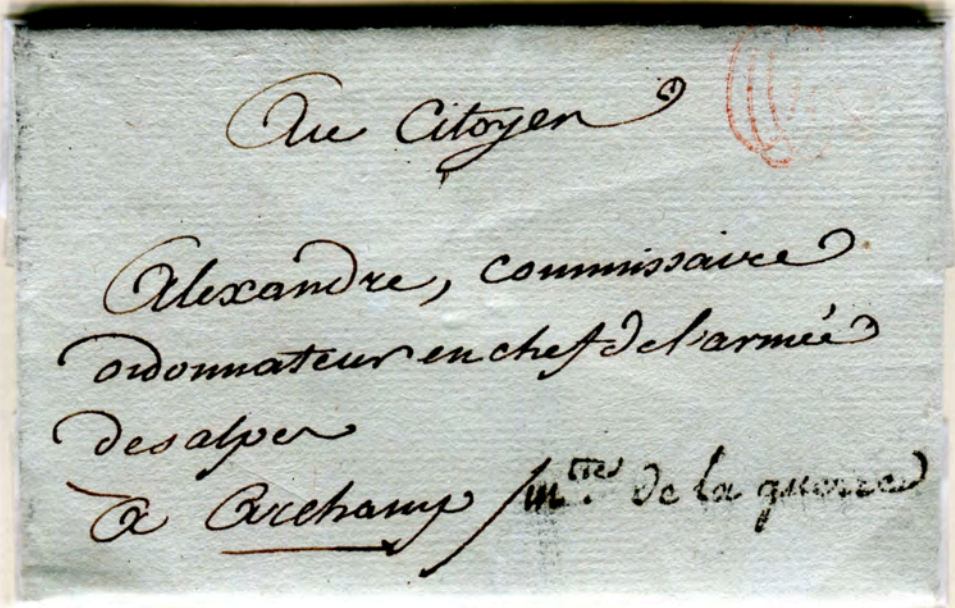 Au Citoyen
Alexandre, commissaire
ordonnateur en chef de l'armée
des alpes
a Archamp
m.tre de la guerre